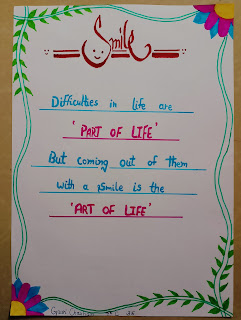 Smile
Difficulties in life are
'PART OF LIFE'
But coming out of them
with a smile is the
'ART OF LIFE'